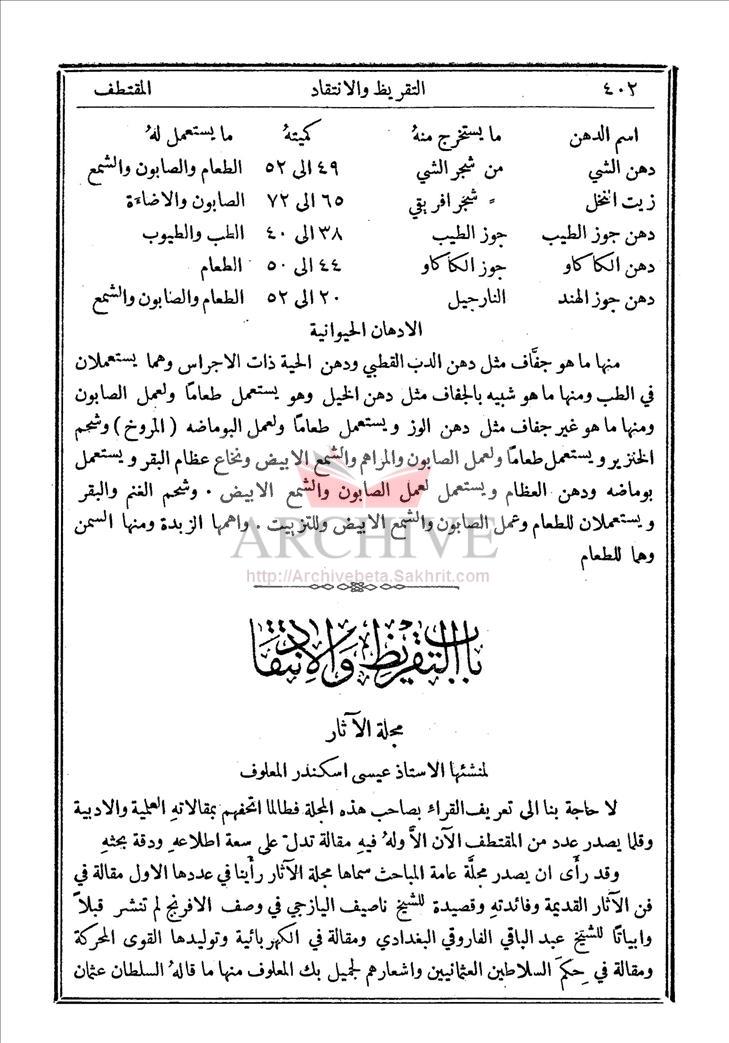 ٤٠٢ التقريظ والانتقاد المقتطف
اسم الدهن ما يستخرج منهُ كميتهُ ما يستعمل لهُ
دهن الشي من شجر الشي ٤٩ الى ٥٢ الطعام والصابون والشمع
زيت النخل = شجر افريقي ٦٥ الى ٧٢ الصابون والاضاءة
دهن جوز الطيب جوز الطيب ٣٨ الى ٤٠ الطب والطيوب
دهن الكاكاو جوز الكاكاو ٤٤ الى ٥٠ الطعام
دهن جوز الهند النارجيل ٢٠ الى ٥٢ الطعام والصابون والشمع
الادهان الحيوانية
منها ما هو جفَّاف مثل دهن الدب القطبي ودهن الحية ذات الاجراس وهما يستعملان
في الطب ومنها ما هو شبيه بالجفاف مثل دهن الخيل وهو يستعمل طعامًا ولعمل الصابون
ومنها ما هو غير جفاف مثل دهن الوز ويستعمل طعامًا ولعمل البوماضه (المروخ) وشحم
الخنزير ويستعمل طعامًا ولعمل الصابون والمراهم والشمع الابيض ونخاع عظام البقر ويستعمل
بوماضه ودهن العظام ويستعمل لعمل الصابون والشمع الابيض . وشحم الغنم والبقر
ويستعملان للطعام وعمل الصابون والشمع الابيض وللتزييت . واهمها الزبدة ومنها السمن
وهما للطعام
ARCHIVE
http://Archivebeta.Sakhrit.com
باب التقريظ والانتقاد
مجلة الآثار
لمنشئها الاستاذ عيسى اسكندر المعلوف
لا حاجة بنا الى تعريف القراء بصاحب هذه المجلة فطالما اتحفهم بمقالاتهِ العلمية والادبية
وقلما يصدر عدد من المقتطف الآن الاَّ ولهُ فيهِ مقالة تدلّ على سعة اطلاعهِ ودقة بحثهِ
وقد رأى ان يصدر مجلَّة عامة المباحث سماها مجلة الآثار رأينا في عددها الاول مقالة في
فن الآثار القديمة وفائدتهِ وقصيدة للشيخ ناصيف اليازجي في وصف الافرنج لم تنشر قبلاً
وابياتًا للشيخ عبد الباقي الفاروقي البغدادي ومقالة في الكهربائية وتوليدها القوى المحركة
ومقالة في حِكَم السلاطين العثمانيين واشعارهم لجميل بك المعلوف منها ما قالهُ السلطان عثمان